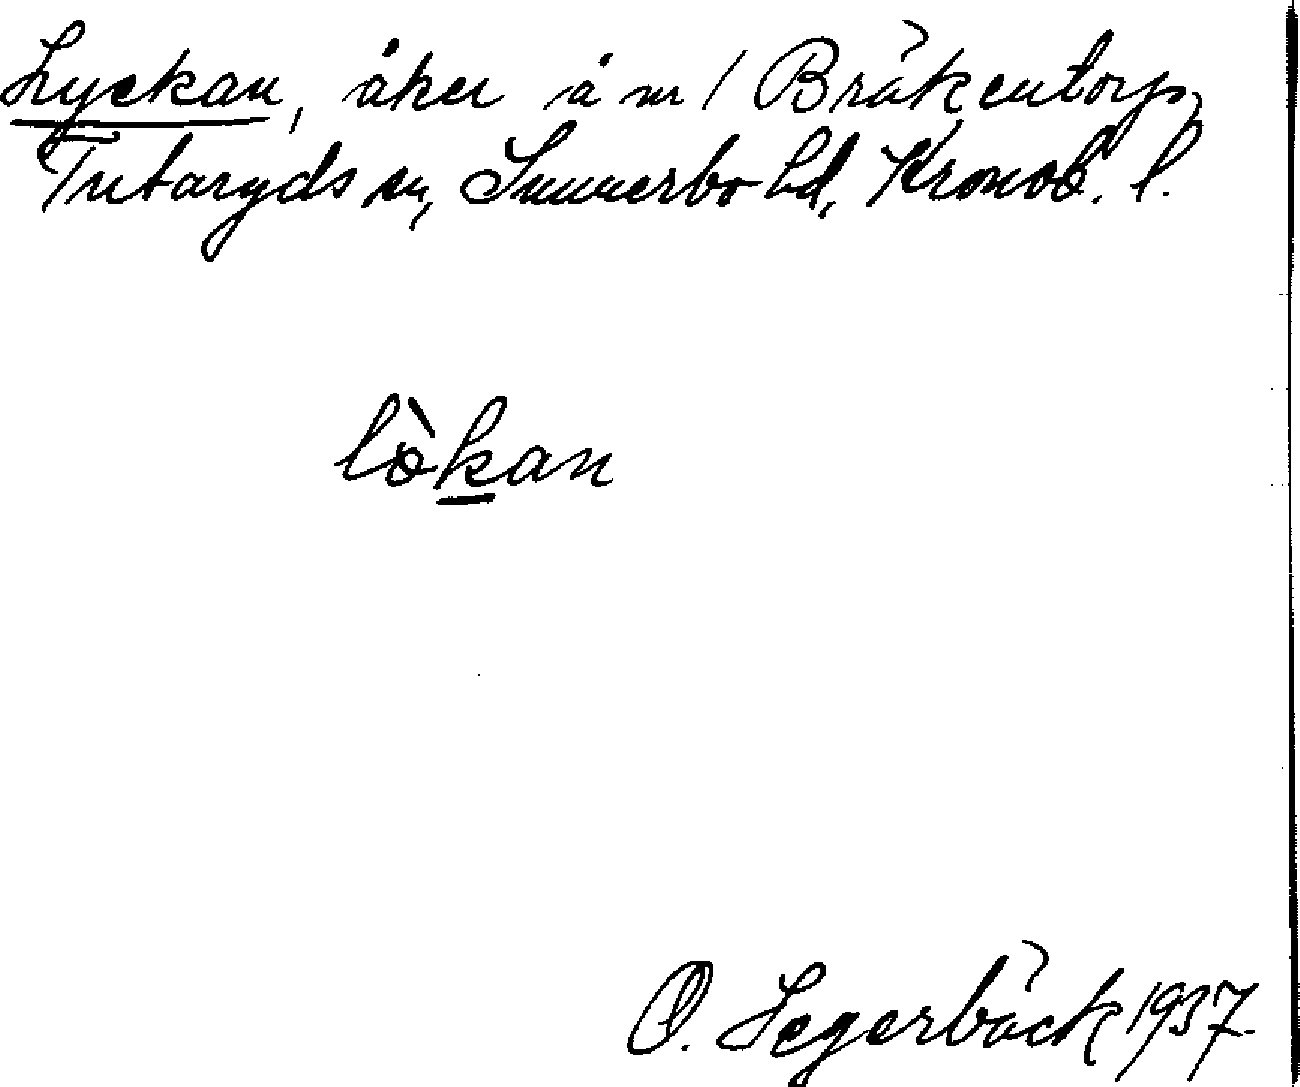 Lyckan, åker å nr 1 Bråkentorp,
Tutaryds sn, Sunnerbo hd, Kronob. l.
lo̊̀kan
O. Segerbäck 1937.